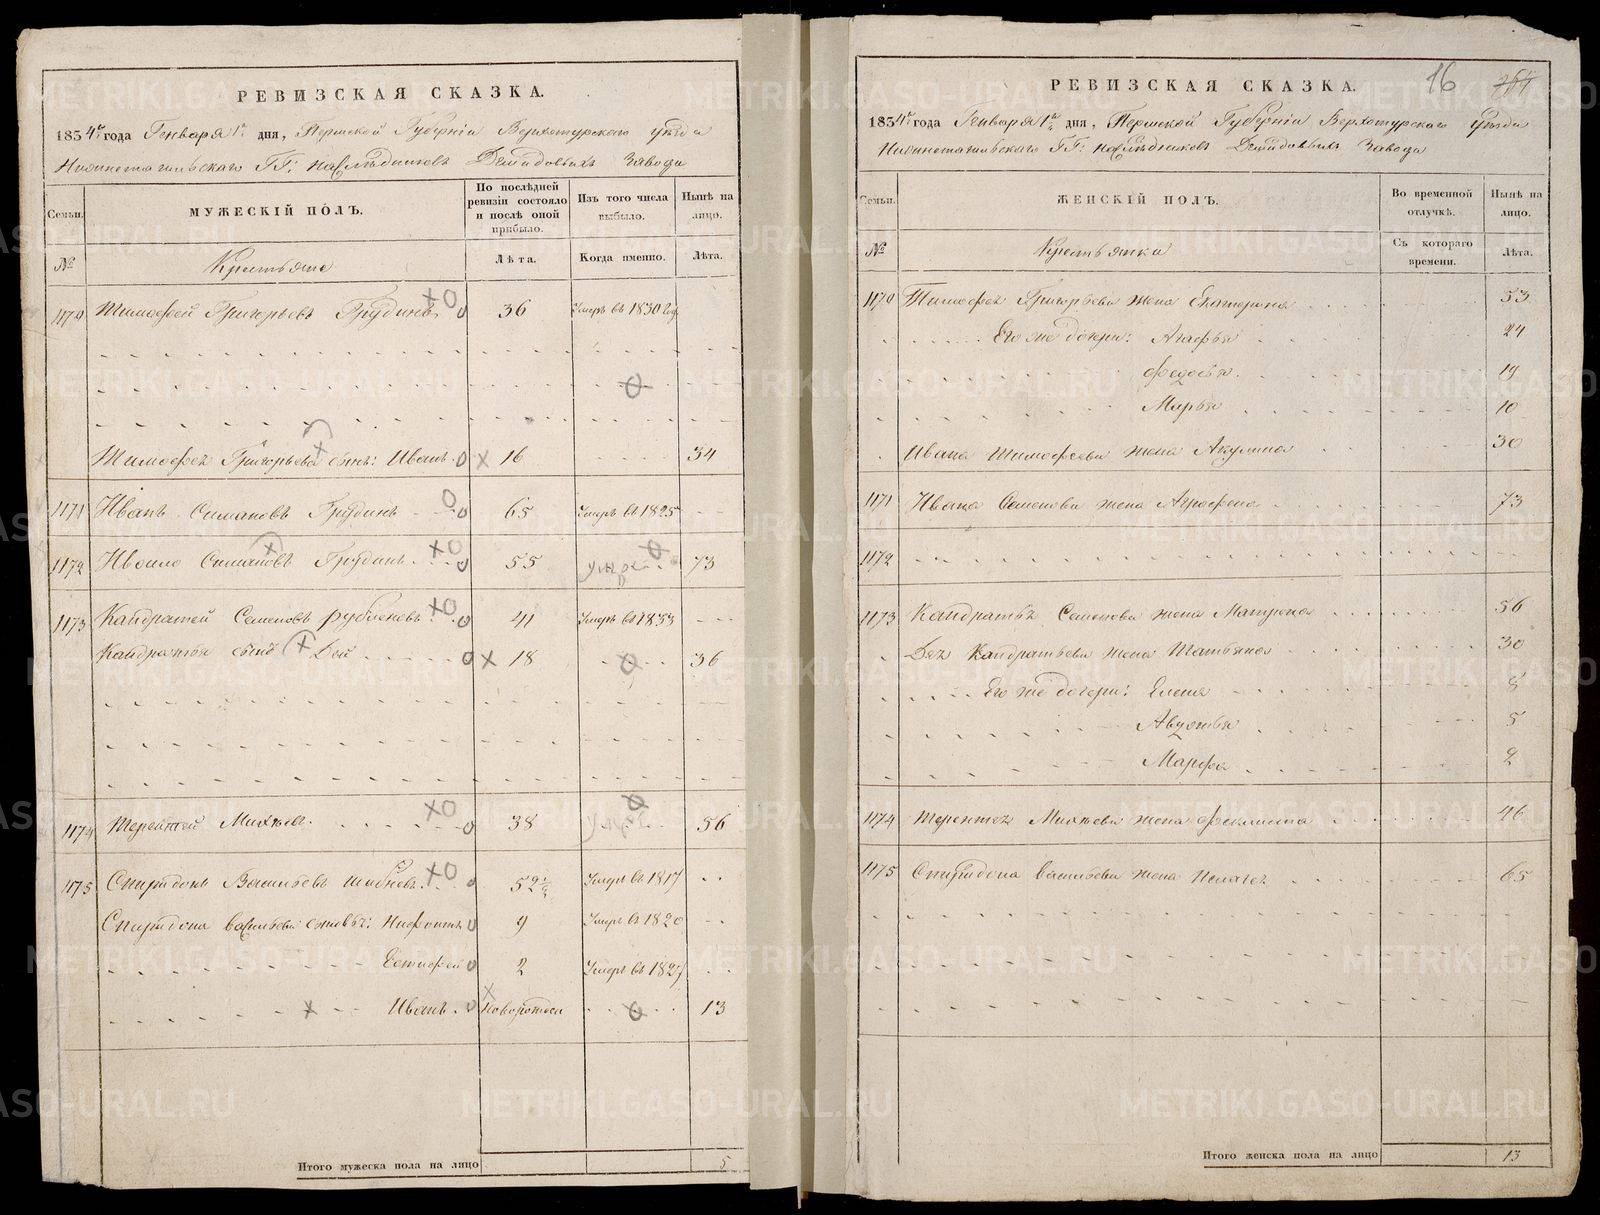 РЕВИЗСКАЯ СКАЗКА.
1834 года Генваря 1 дня, Пермской Губерніи Верхотурскаго уѣзда
Нижнетагильскаго ГГ: наслѣдниковъ Демидовыхъ Завода
Семьи. МУЖЕСКІЙ ПОЛЪ. По послѣдней ревизіи состояло и послѣ оной прибыло. Изъ того числа выбыло. Нынѣ на лицо.
№ Крестьяне Лѣта. Когда именно. Лѣта.
1170 Тимофей Григорьевъ Грудинъ 36 Умеръ въ 1830
Тимофея Григорьева сынъ: Иванъ 16 34
1171 Иванъ Симановъ Грудинъ 65 Умеръ въ 1825
1172 Симановъ Грудинъ 55 73
1173 Кандратей Семеновъ 41 Умеръ въ 1833
Кандратья сынъ 18 36
1174 Терентей 38 56
1175 Спиридонъ Васильевъ 52 1/2 Умеръ въ 1817
Спиридона васильева сыновья: 9 Умеръ въ 1820
2 Умеръ въ 1827
Иванъ 13
Итого мужеска пола на лицо 5
РЕВИЗСКАЯ СКАЗКА.
16
1834 года Генваря 1 дня, Пермской Губерніи Верхотурскаго уѣзда
Нижнетагильскаго ГГ: наслѣдниковъ Демидовыхъ Завода
Семьи. ЖЕНСКІЙ ПОЛЪ. Во временной отлучкѣ. Нынѣ на лицо.
№ Крестьянки Съ котораго времени. Лѣта.
1170 Тимофея Григорьева жена Екатерина 53
Его же дочери: Агафья 24
Федосья 19
Марья 10
Ивана Тимофеева жена Акулина 30
1171 Ивана Семенова жена Аграфена 73
1172
1173 Кандратья Семенова жена Матрена 56
Кандратьева жена Татьяна 30
Его же дочери: Елена 8
Авдотья 5
Марфа 2
1174 Терентея жена Феклиста 46
1175 Спиридона васильева жена Пелагея 65
Итого женска пола на лицо 13
METRIKI.GASO-URAL.RU